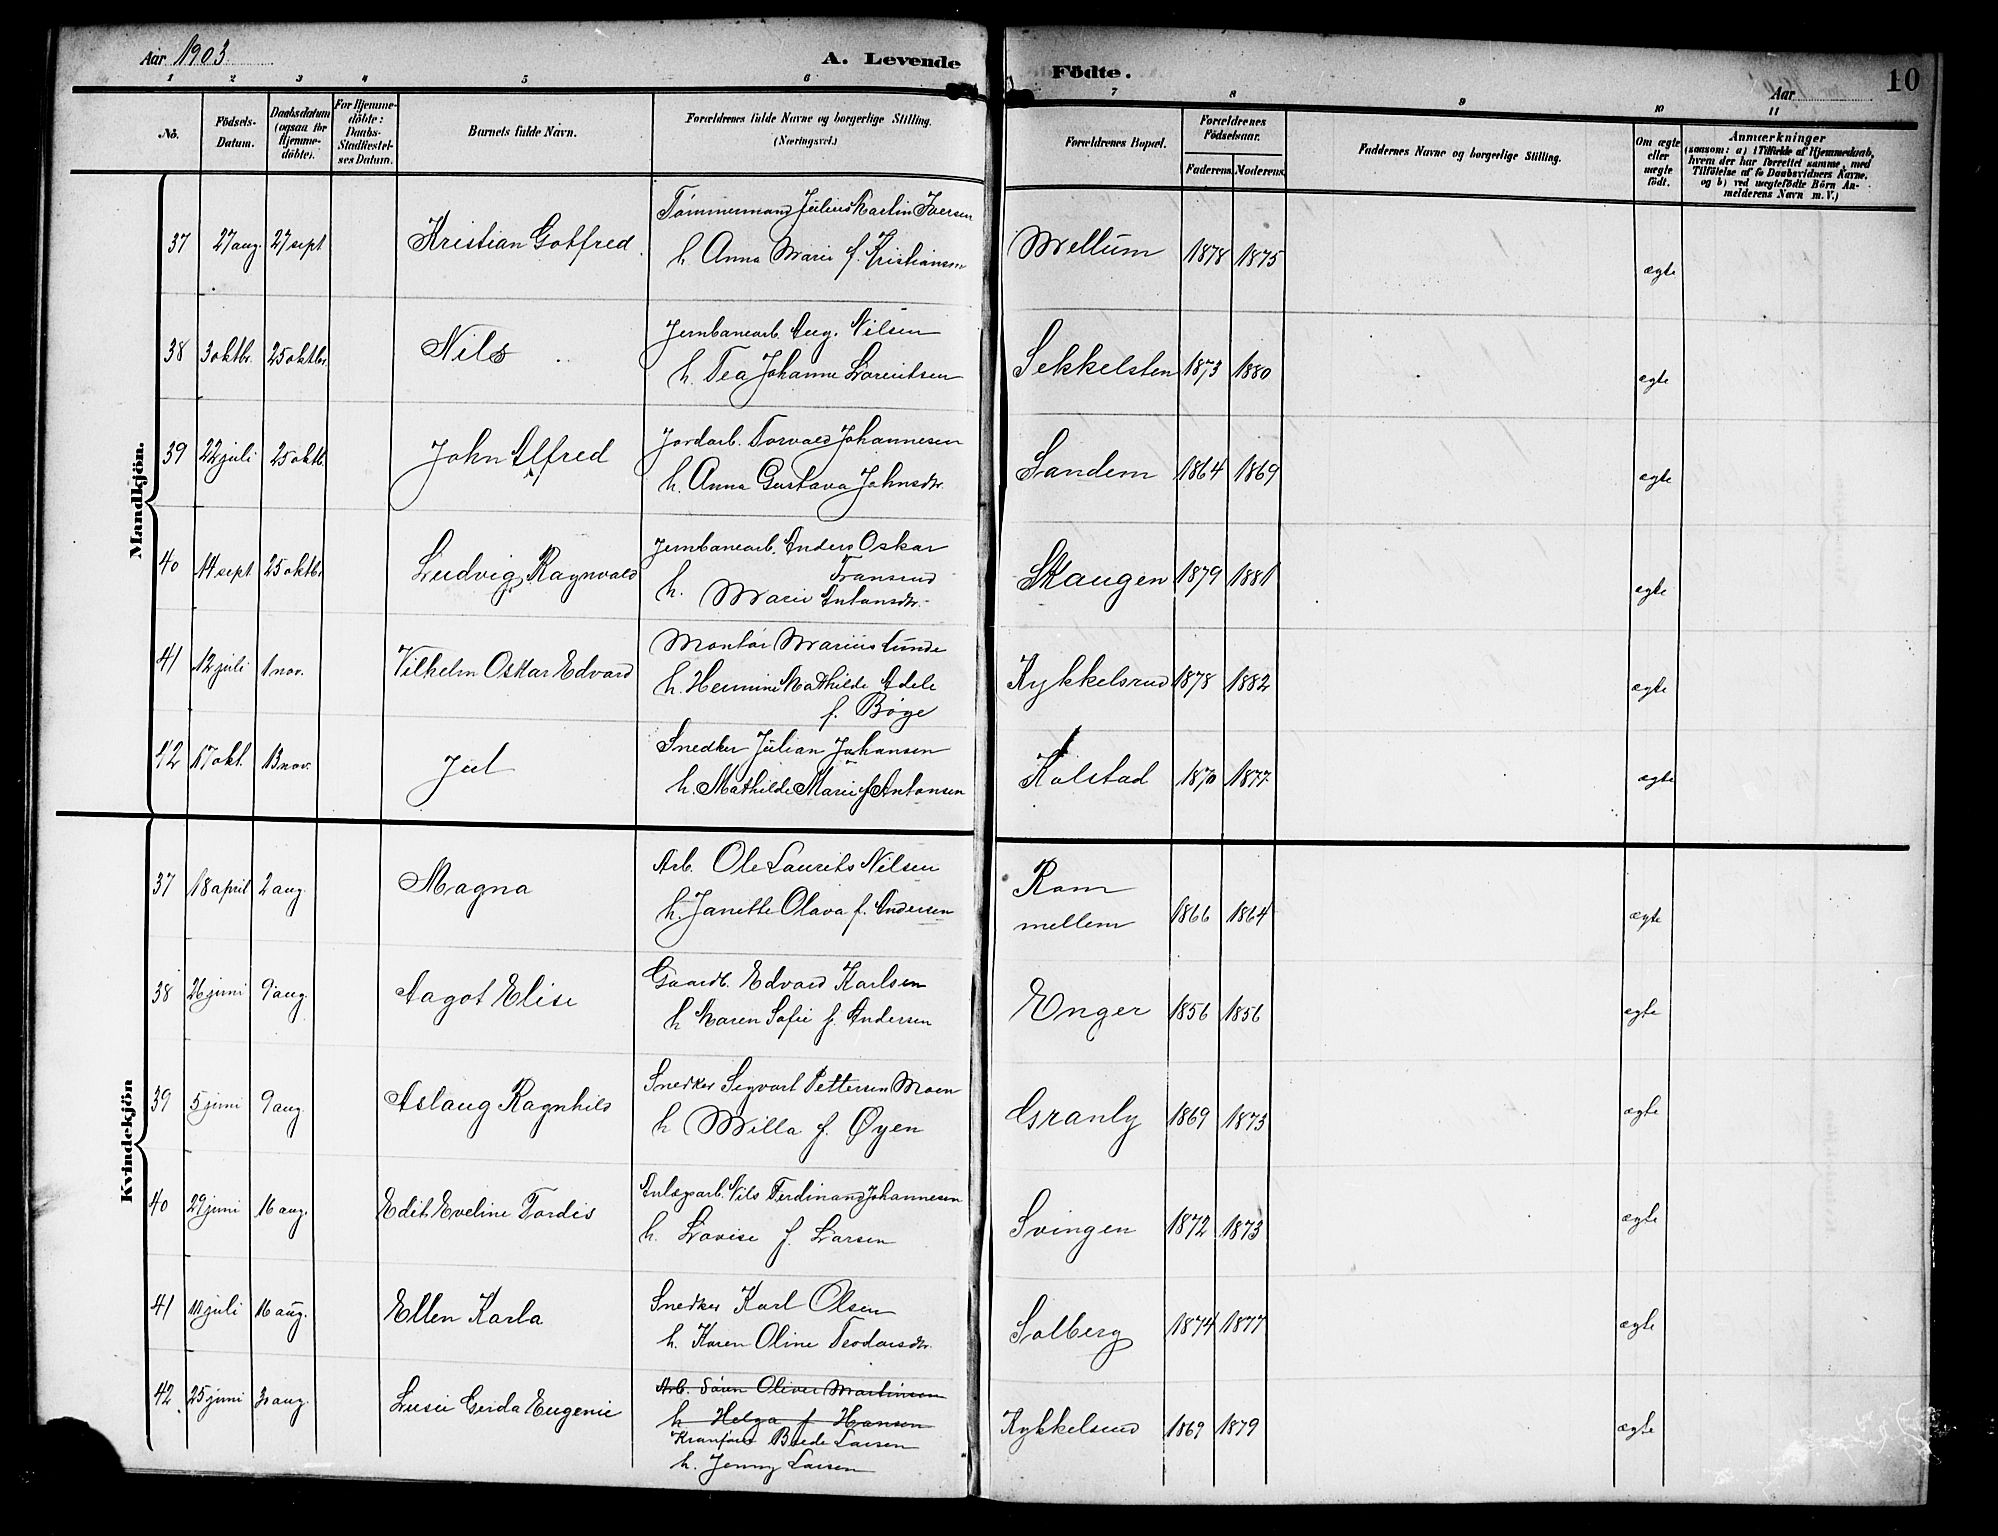 Aar 1903.
A. Levende Födte.
Aar
10
1 2 3 4 5 6 7 8 9 10 11
No.
Födsels-Datum.
Daabsdatum (ogsaa for Hjemme-döbte).
For Hjemme-döbte: Daabs-Stadfæstelses Datum.
Barnets fulde Navn.
Forældrenes fulde Navne og borgerlige Stilling. (Næringsvei.)
Forældrenes Bopæl.
Forældrenes Födselsaar.
Faderens. Moderens.
Faddernes Navne og borgerlige Stilling.
Om ægte eller uægte födt.
Anmærkninger
(saasom: a) i Tilfælde af Hjemmedaab, hvem der har forrettet samme, med Tilföielse af to Daabsvidners Navne, og b) ved uægtefödte Börn Anmelderens Navn m. V.)
Mandkjön.
37 27 aug. 27 sept Kristian Gotfred. Tømmermand Julius Martin Iversen
h. Anna Marie f. Kristiansen Mellum 1878 1875 ægte
38 3 oktbr. 25 oktbr. Nils Jernbanearb. Aug. Nilsen
h. Tea Johanne Lorentsen Sekkelsten 1873 1880 ægte
39 22 juli 25 oktb. John Alfred Jordarb. Torvald Johannesen
h. Anna Gustava Johnsdtr. Sandem 1864 1869 ægte
40 14 sept 25 oktbr Ludvig Ragnvald Jernbanearb. Anders Oskar
Fransrud
h. Marie Antonsdtr. Skaugen 1879 1881 ægte
41 12 juli 1 nov. Vilhelm Oskar Edvard Montør Marius Lunde
h. Hermine Mathilde Adele
f. Böge Kykkelsrud 1878 1882 ægte
42 17 okt. 13 nov. Juel Snedker Julian Johansen
h. Mathilde Marie f. Antonsen Kolstad 1870 1877 ægte
Kvindekjön
37 18 april 2 aug. Magna Arb. Ole Laurits Nilsen
h. Janette Olava f. Andersen Rom
mellem 1866 1864 ægte
38 26 juni 9 aug. Aagot Elise Gaardb. Edvard Karlsen
h Maren Sofie f. Andersen Enger 1856 1856 ægte
39 5 juni 9 aug. Aslaug Ragnhild Snedker Sigvart Pettersen Moen
h Milla f. Øyen Granly 1869 1873 ægte
40 29 juni 16 aug. Edit Eveline Tordis Anlægsarb. Nils Ferdinand Johannesen
h. Lovise f. Larsen Svingen 1872 1873 ægte
41 11 juli 16 aug. Ellen Karla Snedker Karl Olsen
h. Karen Oline Teodorsdtr. Solberg 1874 1877 ægte
42 25 juni 30 aug. Gerda Eugenie Arb. Sören Oliver Martinsen
h Helga f Hansen
Larsen
h. Jenny Larsen Kykkelsrud 1869 1879 ægte